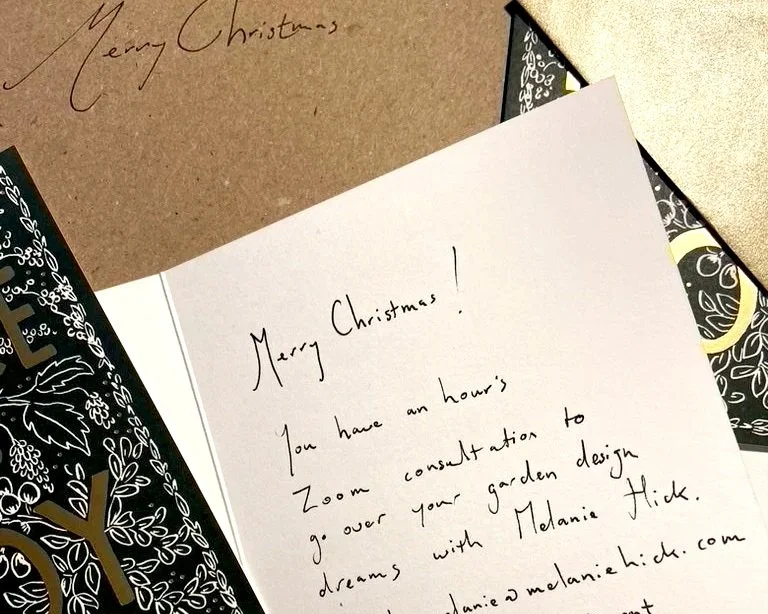 Merry Christmas
Merry Christmas!
You have an hour's
Zoom consultation to
go over your garden design
dreams with Melanie Hick.
melanie@melaniehick.com